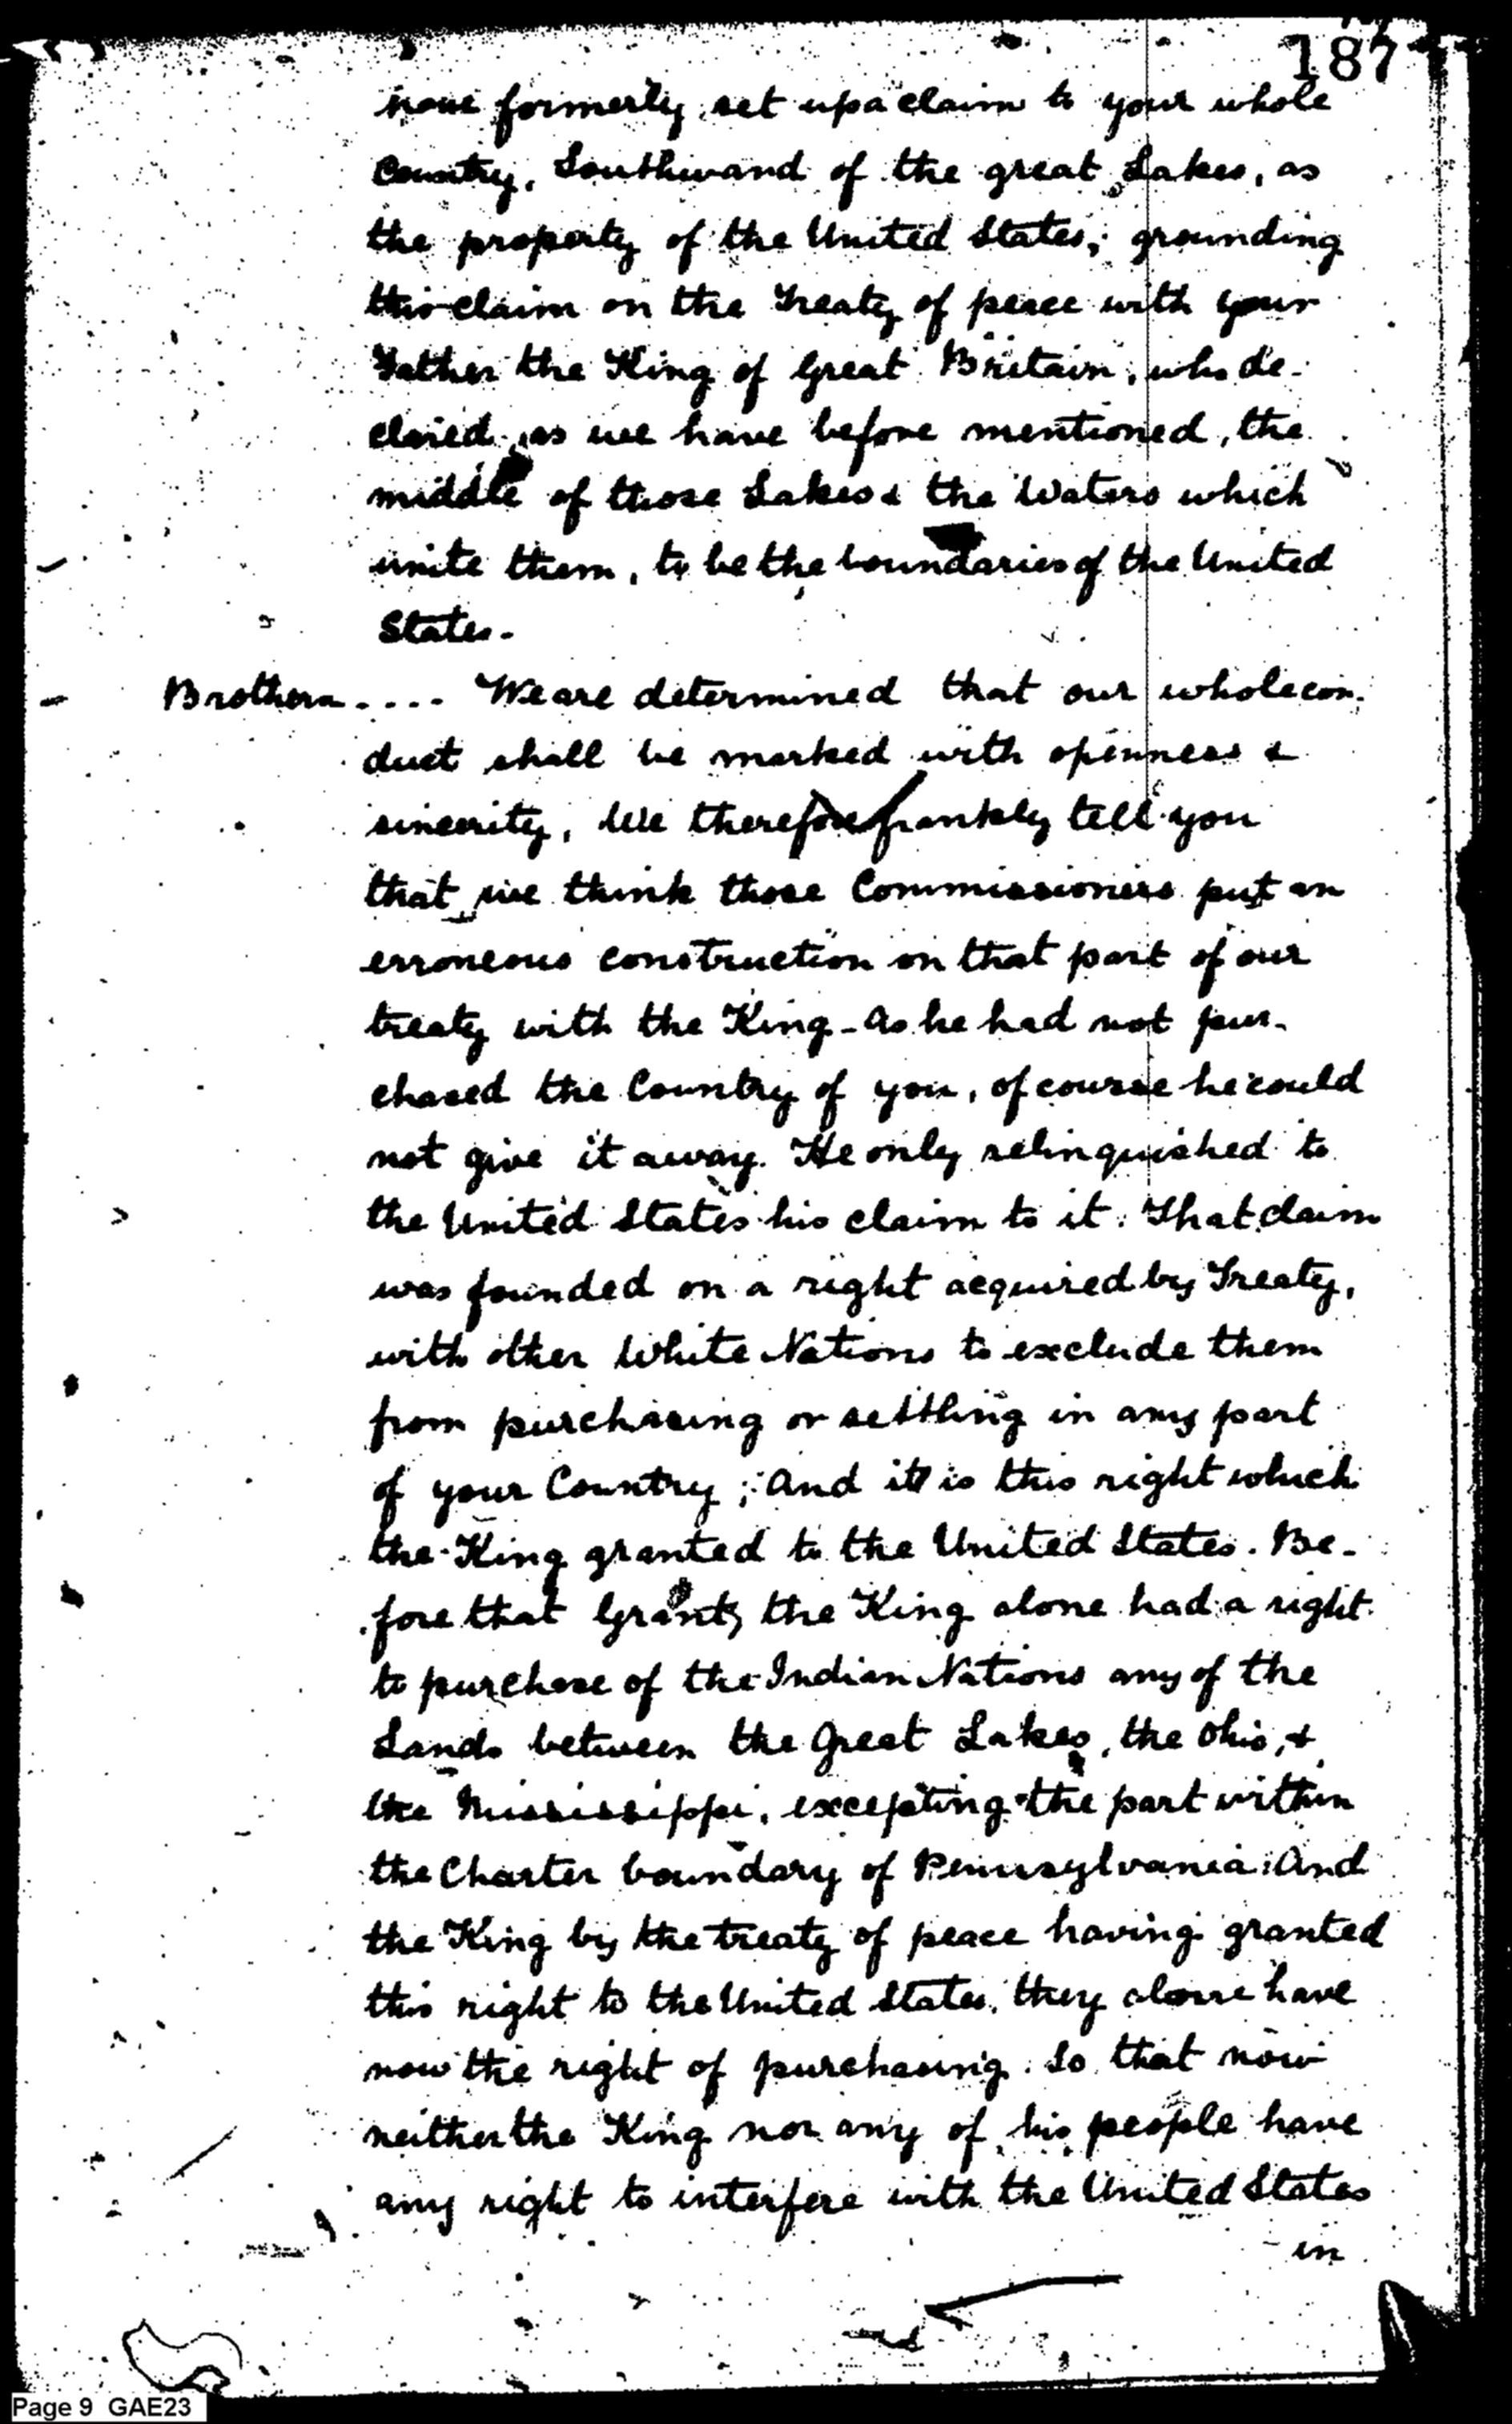 187
have formerly set up a claim to your whole
Country, Southward of the great Lakes, as
the property of the United States; grounding
this claim on the Treaty of peace with your
Father the King of Great Britain, who de-
clared, as we have before mentioned, the
middle of those Lakes & the Waters which
unite them, to be the boundaries of the United
States.
Brothers.... We are determined that our whole con-
duct shall be marked with openness &
sincerity, We therefore frankly tell you
that we think those Commissioners put an
erroneous construction on that part of our
treaty with the King - As he had not pur-
chased the Country of you, of course he could
not give it away. He only relinquished to
the United States his claim to it. That claim
was founded on a right acquired by Treaty,
with other White Nations to exclude them
from purchasing or settling in any part
of your Country; And it is this right which
the King granted to the United States. Be-
fore that Grant, the King alone had a right
to purchase of the Indian Nations any of the
Lands between the Great Lakes, the Ohio, &
the Mississippi, excepting the part within
the Charter boundary of Pennsylvania: And
the King by the treaty of peace having granted
this right to the United States, they alone have
now the right of purchasing. So that now
neither the King nor any of his people have
any right to interfere with the United States
in
Page 9 GAE23